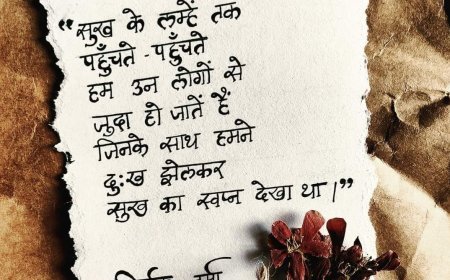 “सुख के लम्हें तक
पहुँचते - पहुँचते
हम उन लोगों से
जुदा हो जातें हैं
जिनके साथ हमने
दुःख झेलकर
सुख का स्वप्न देखा था।”